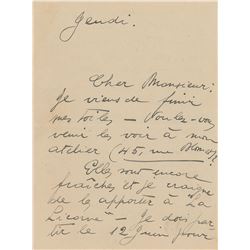 Jeudi.
Cher Monsieur:
Je viens de finir
mes toiles — Voulez-vous
venir les voir à mon
atelier (45, rue Blomet)?
Elles sont encore
fraîches et je crains
de les apporter à La
Licorne — Je dois par-
tir le 12 Juin pour